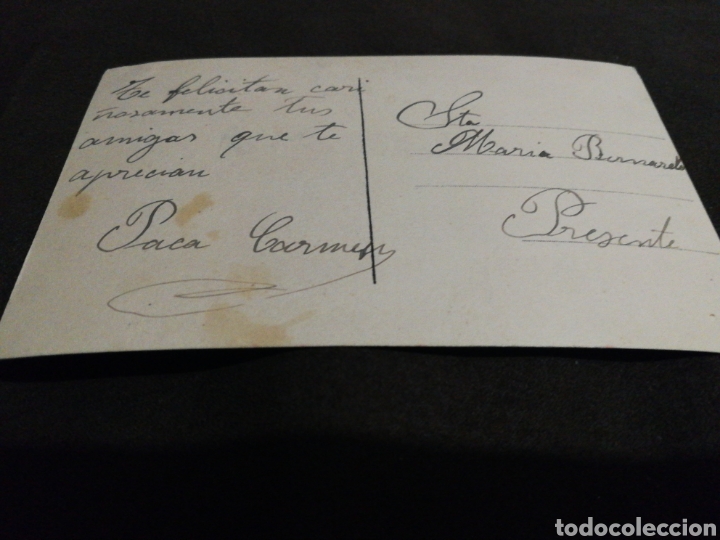 Te felicitan cari
ñosamente tus
amigas que te
aprecian
Paca Carmen
Sta
Maria Bernardo
Presente
todocoleccion